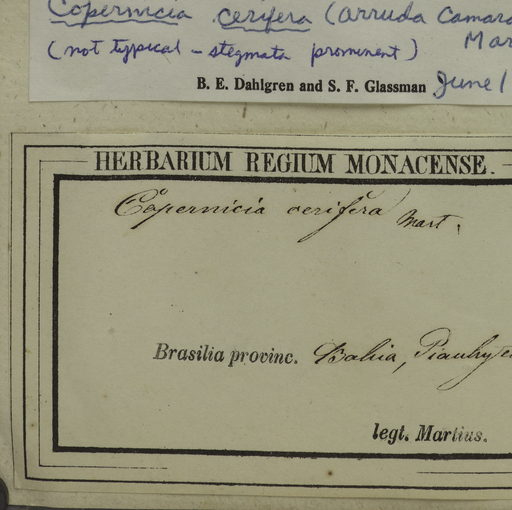 Copernicia cerifera (Arruda Camara
(not typical - stegmata prominent) Mar
B. E. Dahlgren and S. F. Glassman June 1
HERBARIUM REGIUM MONACENSE.
Copernicia cerifera Mart.
Brasilia provinc. Bahia, Piauhy
legt. Martius.